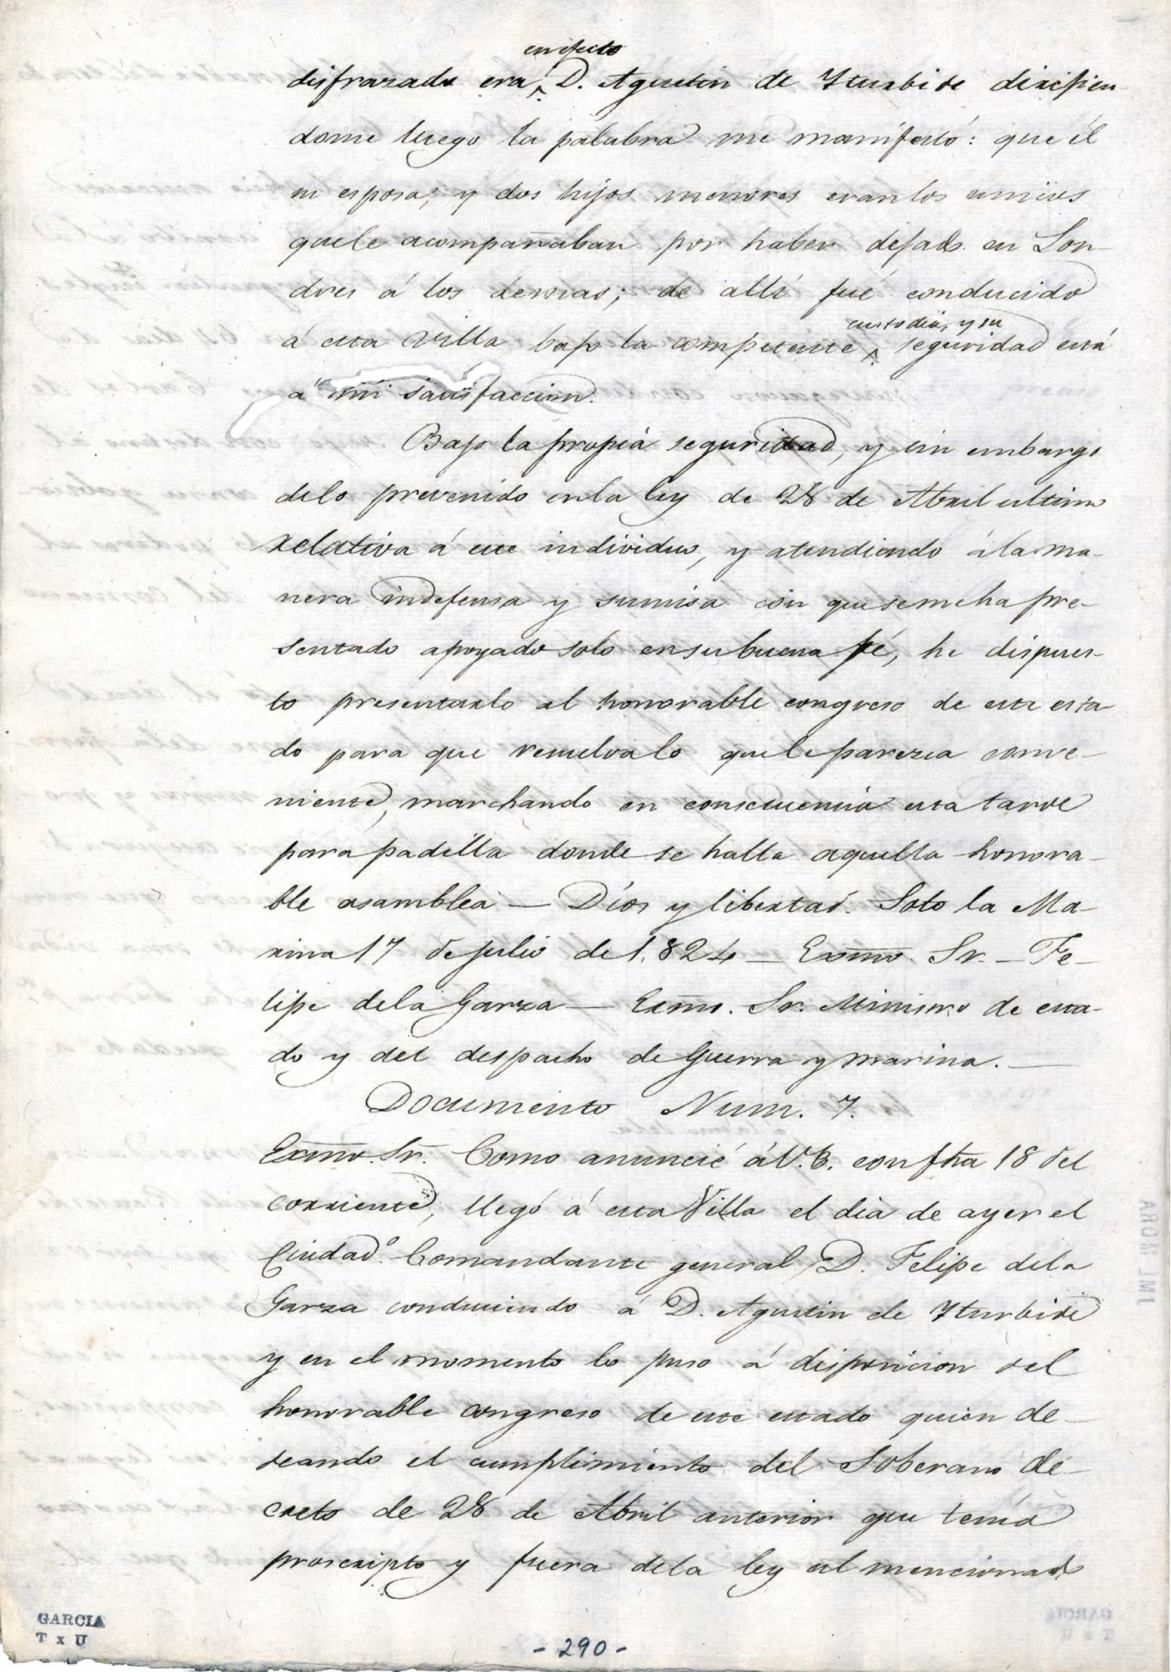 en efecto
disfrazado era D. Agustin de Yturbide dirijien
dome luego la palabra me manifestó: que él
su esposa, y dos hijos menores eran los unicos
quele acompañaban por haber dejado en Lon-
dres á los demas; de allí fué conducido
custodia, y su
á esta Villa bajo la competente seguridad está
á mi satisfaccion.
Bajo la propia seguridad, y sin embargo
delo prevenido enla ley de 28 de Abril ultimo
relativa á ese individuo, y atendiendo á la ma-
nera indefensa y sumisa con que semeha pre-
sentado apoyado solo ensu buena fé, he dispues-
to presentarlo al honorable congreso de este esta-
do para que resuelva lo quele parezca conve-
niente, marchando en consecuencia esta tarde
para padilla donde se halla aquella honora-
ble asamblea — Dios y libertad. Soto la Ma-
rina 17 de julio de 1.824 — Exmo. Sr. — Fe-
lipe dela Garza — Exmo. Sr. Ministro de esta-
do y del despacho de Guerra y marina. —
Documento Num. 7.
Exmo. Sr. Como anuncié á V.E. con fha 18 del
corriente, llegó á esta Villa el dia de ayer el
Ciudadº. Comandante general D. Felipe dela
Garza conduciendo á D. Agustin de Yturbide
y en el momento lo puso á disposicion del
honorable congreso de este estado quien de-
seando el cumplimiento del Soberano de-
creto de 28 de Abril anterior que tenia
proscripto y fuera dela ley al mencionado
GARCIA
T x U
- 290 -